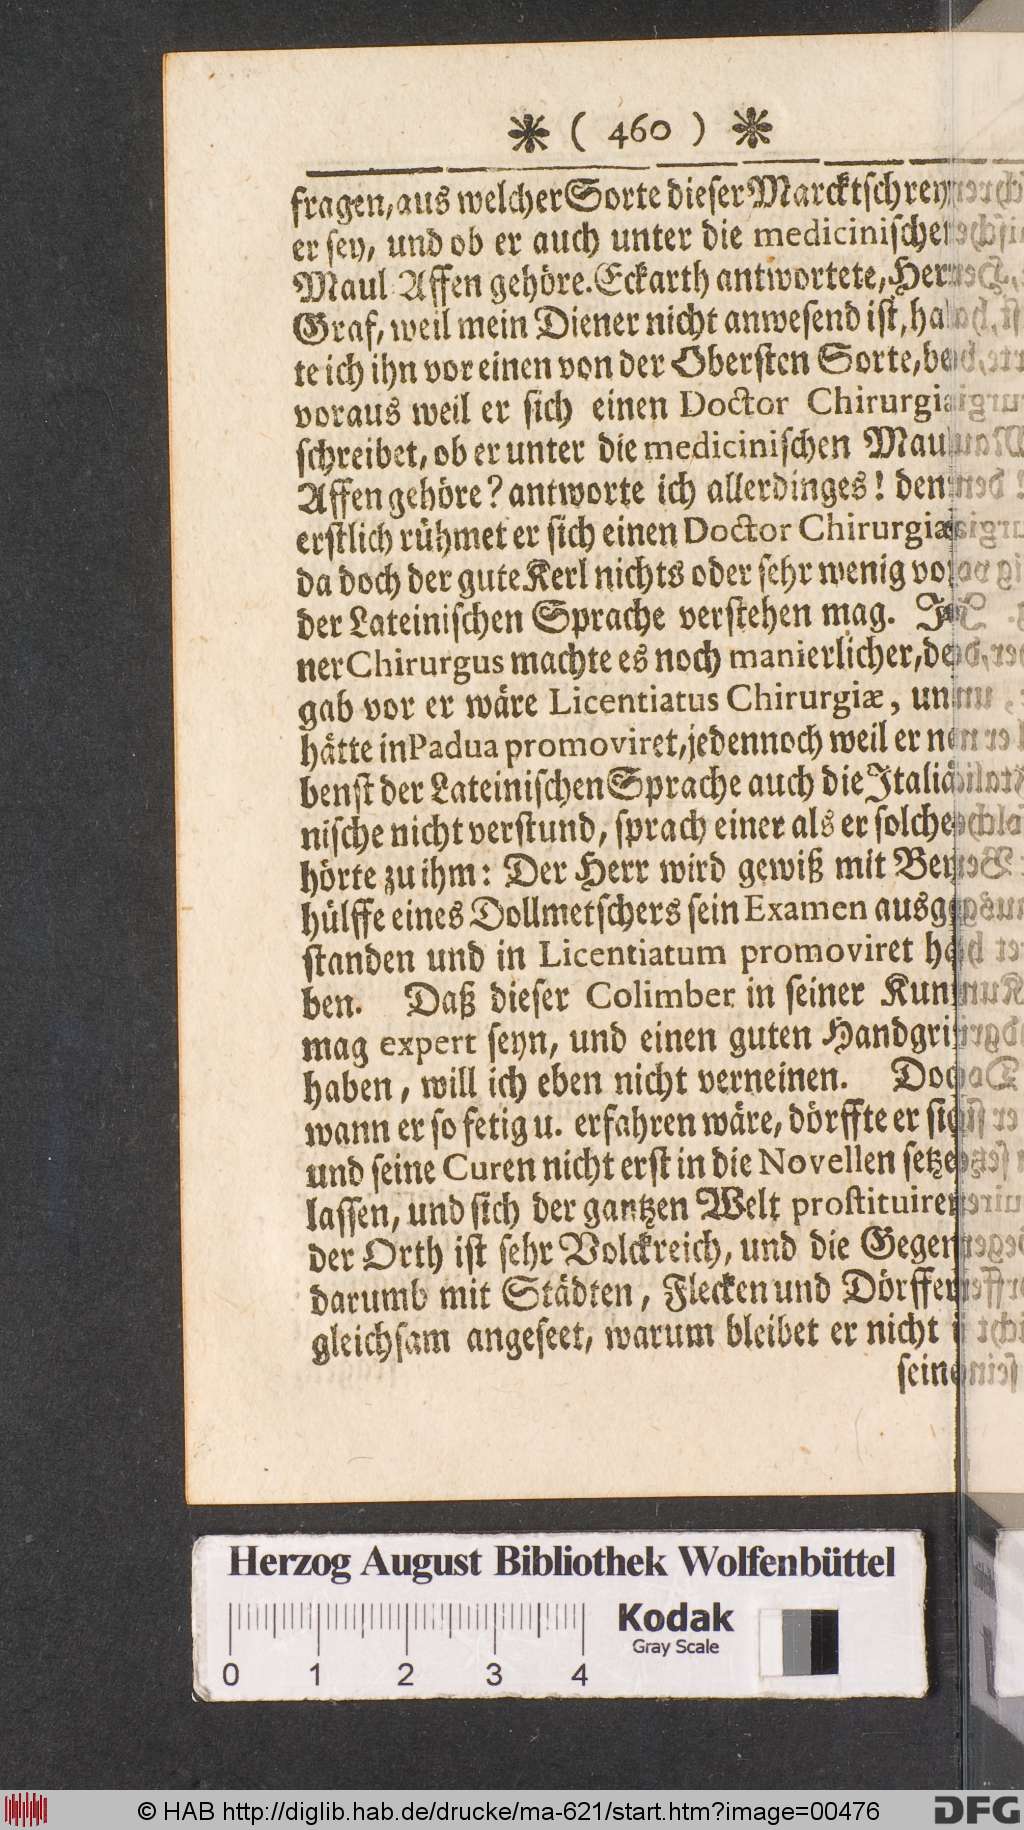 * ( 460 ) *
fragen, aus welcher Sorte dieser Marcktschrey
er sey, und ob er auch unter die medicinischen
Maul Affen gehöre. Eckarth antwortete, Herr
Graf, weil mein Diener nicht anwesend ist, hal
te ich ihn vor einen von der Obersten Sorte, be
voraus weil er sich einen Doctor Chirurgiæ
schreibet, ob er unter die medicinischen Maul
Affen gehöre? antworte ich allerdinges! denn
erstlich rühmet er sich einen Doctor Chirurgiæ
da doch der gute Kerl nichts oder sehr wenig von
der Lateinischen Sprache verstehen mag. Je
ner Chirurgus machte es noch manierlicher, der
gab vor er wäre Licentiatus Chirurgiæ, und
hätte in Padua promoviret, jedennoch weil er ne
benst der Lateinischen Sprache auch die Italiä
nische nicht verstund, sprach einer als er solches
hörte zu ihm: Der Herr wird gewiß mit Bey
hülffe eines Dollmetschers sein Examen ausge
standen und in Licentiatum promoviret ha
ben. Daß dieser Colimber in seiner Kunst
mag expert seyn, und einen guten Handgrif
haben, will ich eben nicht verneinen. Doch
wann er so fetig u. erfahren wäre, dörffte er sich
und seine Curen nicht erst in die Novellen setzen
lassen, und sich der gantzen Welt prostituiren
der Orth ist sehr Volckreich, und die Gegend
darumb mit Städten, Flecken und Dörffern
gleichsam angeseet, warum bleibet er nicht in
seine
Herzog August Bibliothek Wolfenbüttel
Kodak
Gray Scale
0 1 2 3 4
© HAB http://diglib.hab.de/drucke/ma-621/start.htm?image=00476
DFG